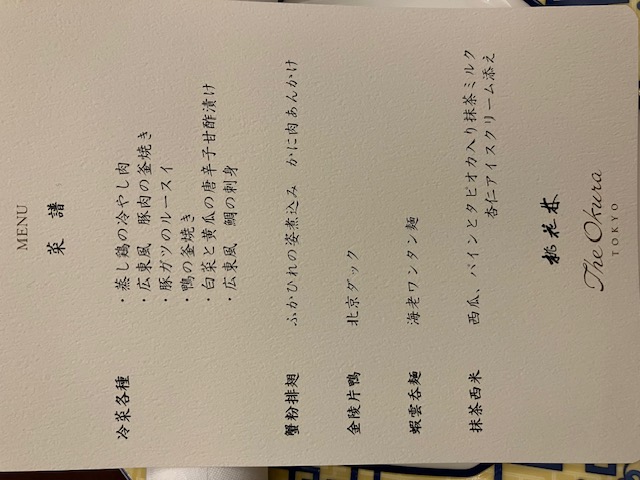 MENU
菜 譜
冷菜各種 ・蒸し鶏の冷やし肉
・広東風 豚肉の釜焼き
・豚ガツのルースイ
・鴨の釜焼き
・白菜と黄瓜の唐辛子甘酢漬け
・広東風 鯛の刺身
蟹粉排翅 ふかひれの姿煮込み かに肉あんかけ
金陵片鴨 北京ダック
蝦雲呑麺 海老ワンタン麺
抹茶西米 西瓜、パインとタピオカ入り抹茶ミルク
杏仁アイスクリーム添え
桃花林
The Okura
TOKYO